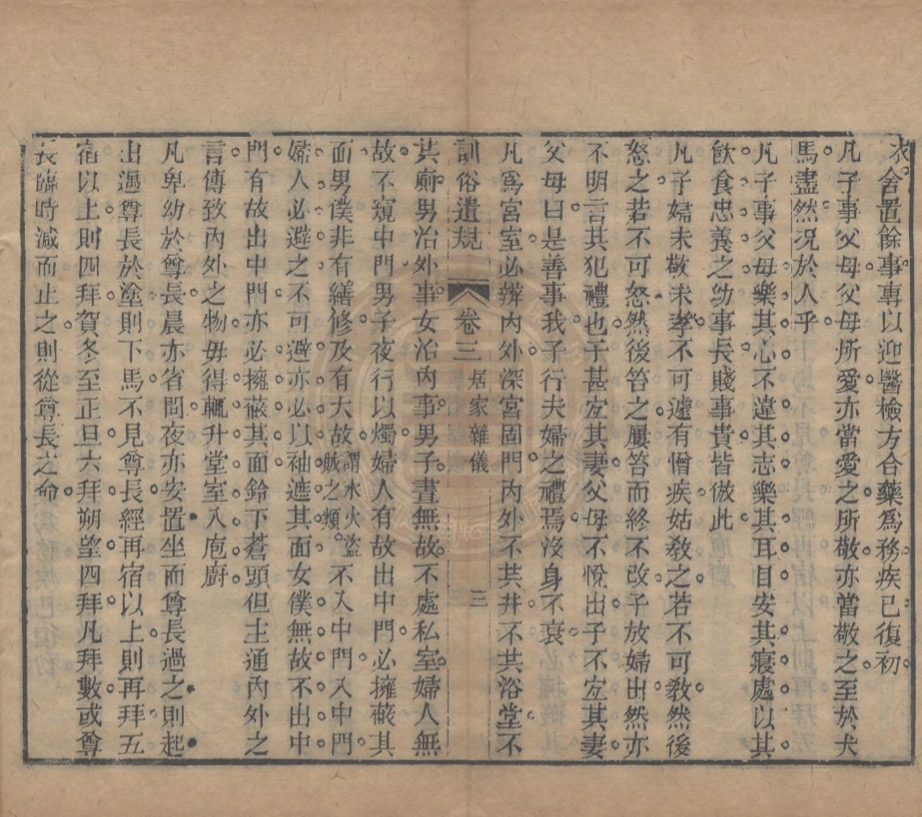 求舍置餘事專以迎醫檢方合藥爲務疾已復初
凡子事父母父母所愛亦當愛之所敬亦當敬之至於犬
馬盡然况於人乎
凡子事父母樂其心不違其志樂其耳目安其寢處以其
飲食忠養之幼事長賤事貴皆倣此
凡子婦未敬未孝不可遽有憎疾姑敎之若不可敎然後
怒之若不可怒然後笞之屢笞而終不改子放婦出然亦
不明言其犯禮也子甚宜其妻父母不悅出子不宜其妻
父母曰是善事我子行夫婦之禮焉沒身不衰
凡爲宮室必辨內外深宮固門內外不共井不共浴堂不
訓俗遺規 卷三 居家雜儀 三
共廁男治外事女治內事男子晝無故不處私室婦人無
故不窺中門男子夜行以燭婦人有故出中門必擁蔽其
面男僕非有繕修及有大故謂水火盜賊之類不入中門入中門
婦人必避之不可避亦必以袖遮其面女僕無故不出中
門有故出中門亦必擁蔽其面鈴下蒼頭但主通內外之
言傳致內外之物毋得輒升堂室入庖廚
凡卑幼於尊長晨亦省問夜亦安置坐而尊長過之則起
出遇尊長於塗則下馬不見尊長經再宿以上則再拜五
宿以上則四拜賀冬至正旦六拜朔望四拜凡拜數或尊
長臨時減而止之則從尊長之命